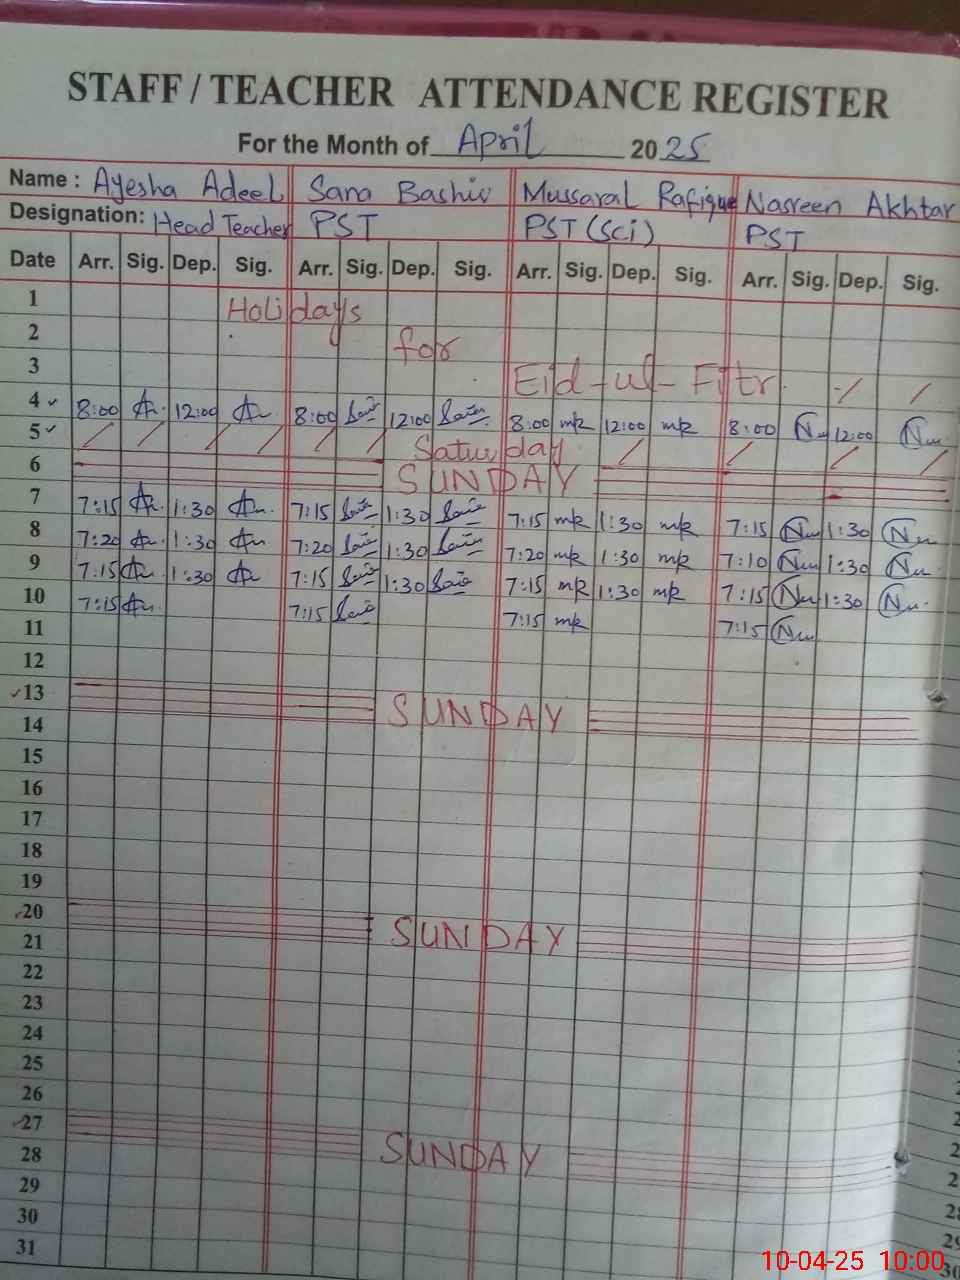 STAFF / TEACHER ATTENDANCE REGISTER
For the Month of April 2025
Name : Ayesha Adeel Sana Bashir Mussarat Rafique Nasreen Akhtar
Designation: Head Teacher PST PST (Sci) PST
Date Arr. Sig. Dep. Sig. Arr. Sig. Dep. Sig. Arr. Sig. Dep. Sig. Arr. Sig. Dep. Sig.
1 Holidays
2 for
3 Eid-ul-Fitr
4 8:00 12:00 8:00 12:00 8:00 mR 12:00 mR 8:00 12:00
5 Saturday
6 SUNDAY
7 7:15 1:30 7:15 1:30 7:15 mR 1:30 mR 7:15 1:30
8 7:20 1:30 7:20 1:30 7:20 mR 1:30 mR 7:10 1:30
9 7:15 1:30 7:15 1:30 7:15 mR 1:30 mR 7:15 1:30
10 7:15 7:15 7:15 mR 7:15
11
12
13 SUNDAY
14
15
16
17
18
19
20 SUNDAY
21
22
23
24
25
26
27 SUNDAY
28
29
30
31
10-04-25 10:00